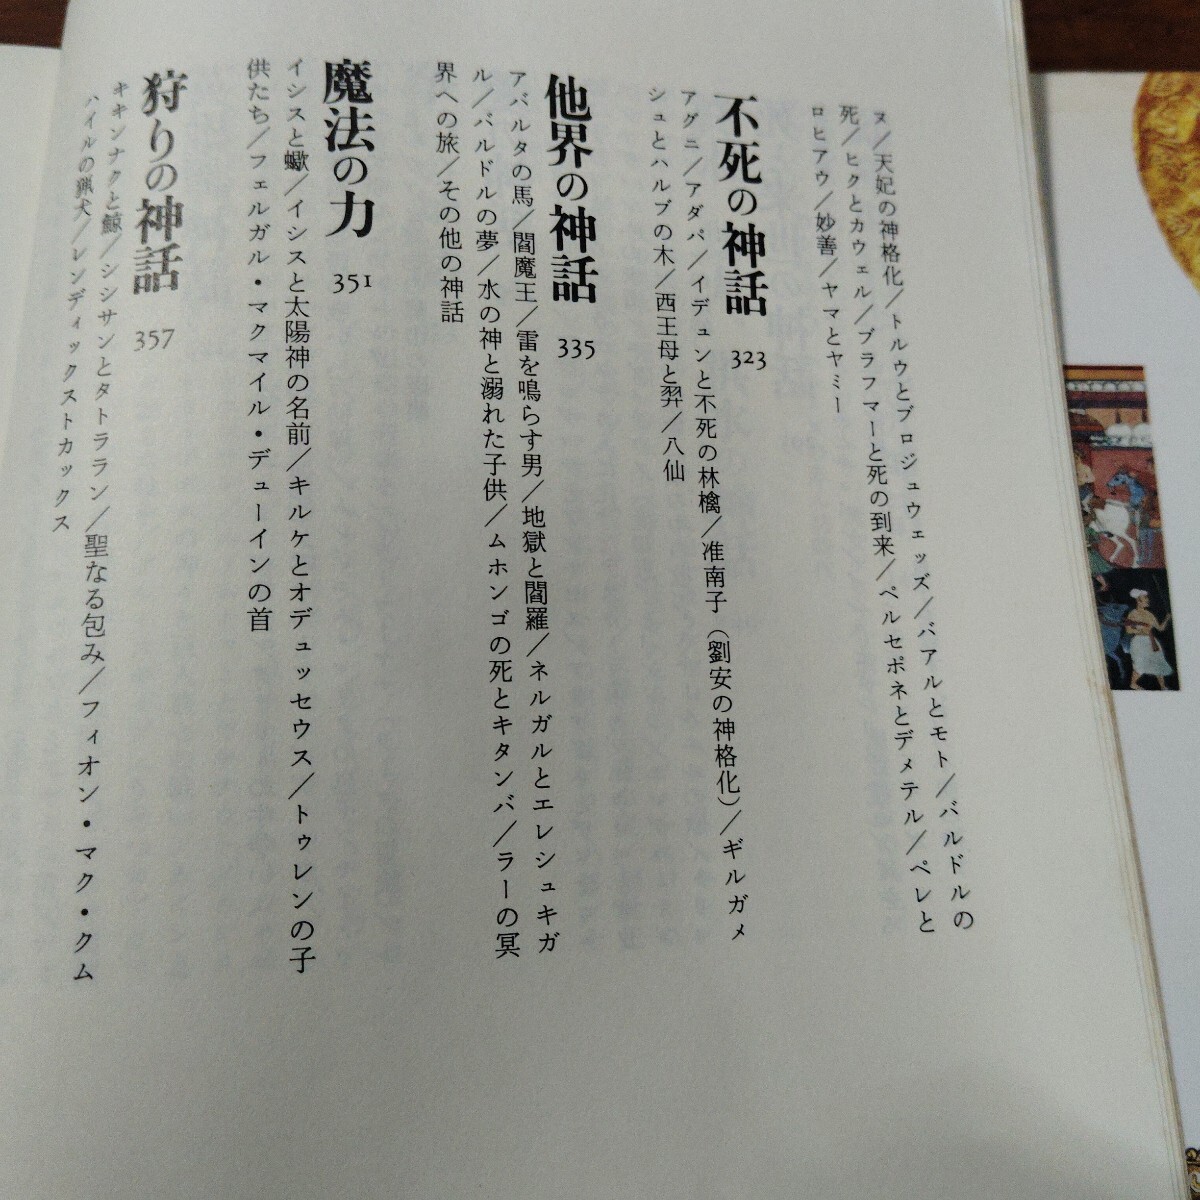 ヌ／天妃の神格化／トルウとブロジュウェッズ／バアルとモト／バルドルの
死／ヒクとカウェル／ブラフマーと死の到来／ペルセポネとデメテル／ペレと
ロヒアウ／妙善／ヤマとヤミー
不死の神話 323
アグニ／アダパ／イデュンと不死の林檎／准南子（劉安の神格化）／ギルガメ
シュとハルブの木／西王母と羿／八仙
他界の神話 335
アバルタの馬／閻魔王／雷を鳴らす男／地獄と閻羅／ネルガルとエレシュキガ
ル／バルドルの夢／水の神と溺れた子供／ムホンゴの死とキタンバ／ラーの冥
界への旅／その他の神話
魔法の力 351
イシスと蠍／イシスと太陽神の名前／キルケとオデュッセウス／トゥレンの子
供たち／フェルガル・マクマイル・デューインの首
狩りの神話 357
キキンナクと鯨／シシサンとタトララン／聖なる包み／フィオン・マク・クム
ハイルの猟犬／レンディックストカックス